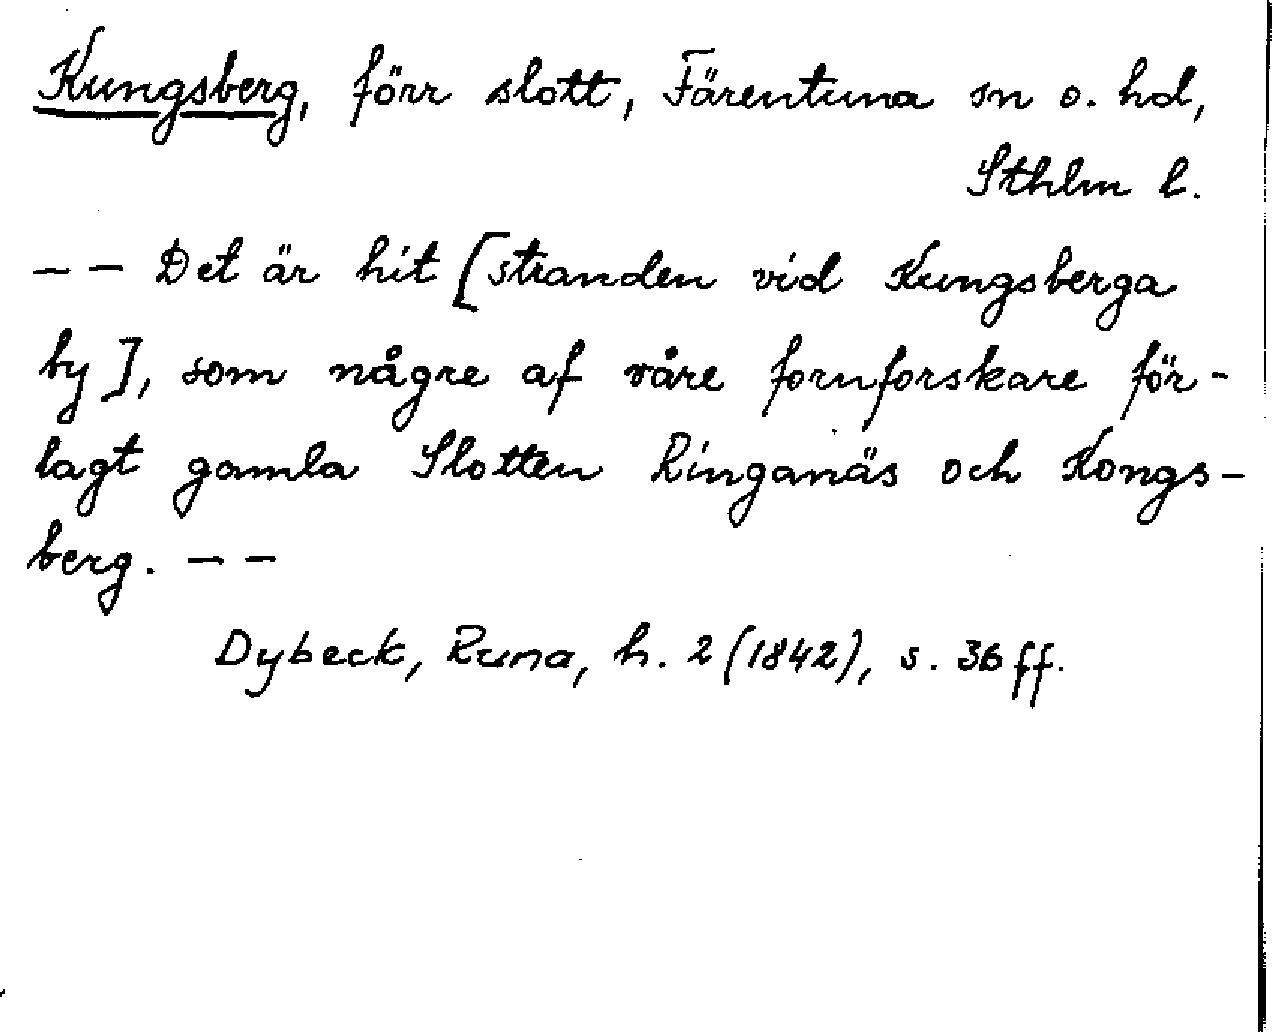 Kungsberg, förr slott, Färentuna sn o. hd,
Sthlm l.
-- Det är hit [stranden vid Kungsberga
by], som någre af våre fornforskare för-
lagt gamla Slotten Ringanäs och Kongs-
berg. --
Dybeck, Runa, h. 2 (1842), s. 36 ff.